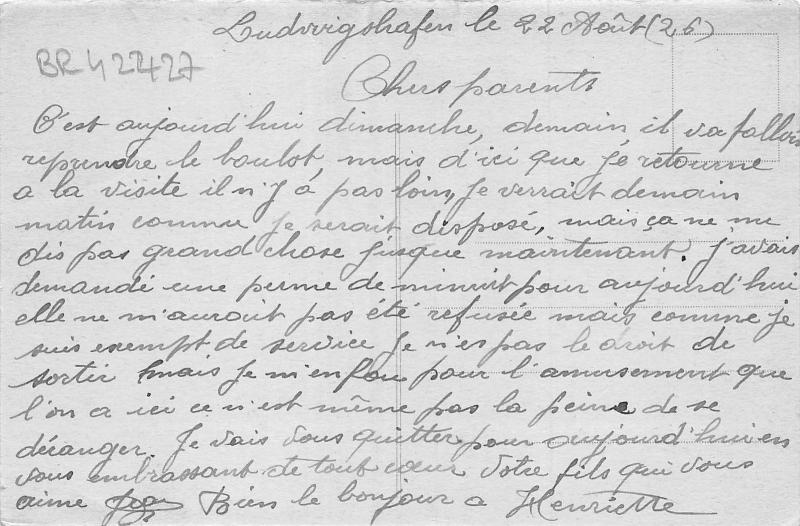 Ludwigshafen le 22 Août (26)
BR422427
Chers parents
C'est aujourd'hui dimanche, demain il va falloir
reprendre le boulot mais d'ici que je retourne
a la visite il n'y à pas loin, je verrait demain
matin comme je serait disposé, mais ça ne me
dis pas grand chose jusque maintenant. J'avais
demandé une perme de minuit pour aujourd'hui
elle ne m'aurait pas été refusée mais comme je
suis exempt de service je n'es pas le droit de
sortir mais je m'en fou pour l'amusement que
l'on a ici ce n'est même pas la peine de se
déranger. Je vais vous quitter pour aujourd'hui en
vous embrassant de tout cœur Votre fils qui vous
aime Bien le bonjour a Henriette